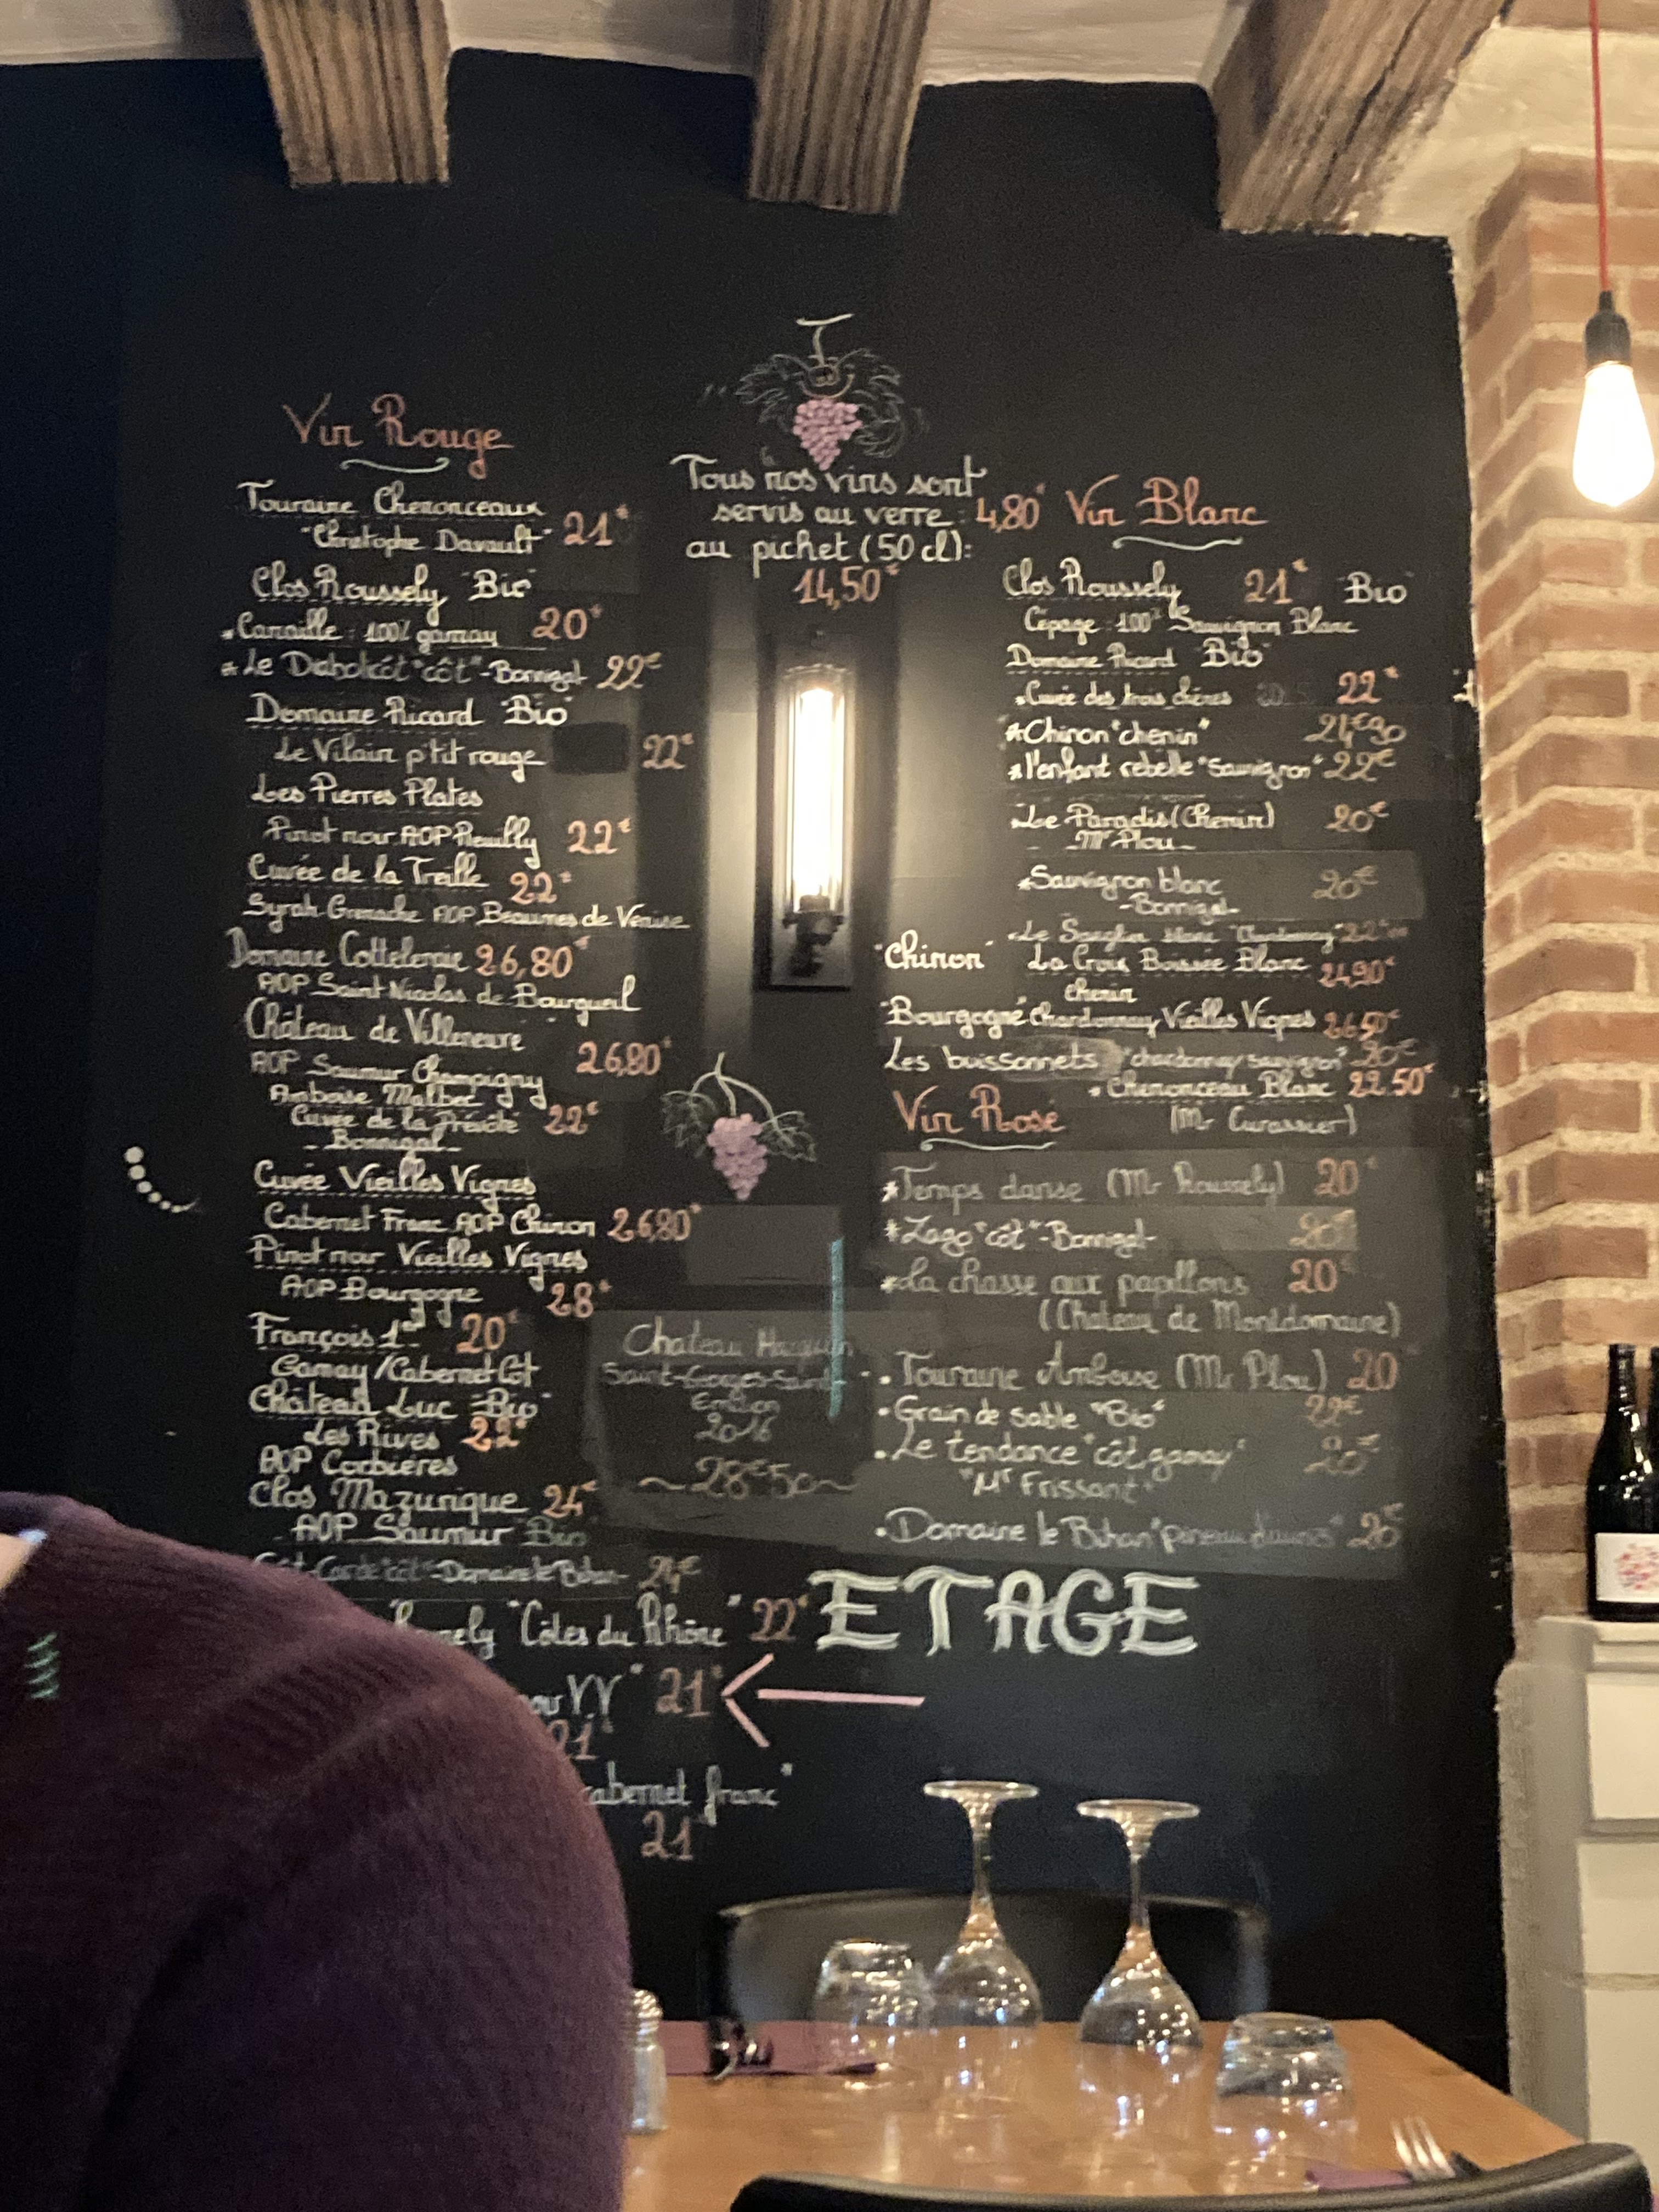 Vin Rouge
Touraine Chenonceaux
"Christophe Davault" 21€
Clos Roussely "Bio"
*Canaille : 100% gamay 20€
*Le Diabolicôt "côt" -Bonnigal- 22€
Domaine Ricard "Bio"
Le Vilain p'tit rouge 22€
Les Pierres Plates
Pinot noir AOP Reuilly 22€
Cuvée de la Treille 22€
Syrah Grenache AOP Beaumes de Venise
Domaine Cottelleraie 26,80€
AOP Saint Nicolas de Bourgueil
Château de Villeneuve
AOP Saumur Champigny 26,80€
Amboise Malbec
Cuvée de la Prévôté 22€
-Bonnigal-
Cuvée Vieilles Vignes
Cabernet Franc AOP Chinon 26,80€
Pinot noir Vieilles Vignes
AOP Bourgogne 28€
François 1er 20€
Gamay/Cabernet Cot
Château Luc "Bio"
Les Rives 22€
AOP Corbières
Clos Mazurique 24€
AOP Saumur "Bio"
"côt" -Domaine le Bihan- 24€
"Côtes du Rhône" 22€
VV" 21€
21€
cabernet franc"
21
Tous nos vins sont
servis au verre : 4,80€
au pichet (50 cl):
14,50€
Chateau
Saint-Georges-Saint-
Emilion
2016
~28€50~
Vin Blanc
Clos Roussely 21€ "Bio"
Cépage : 100% Sauvignon Blanc
Domaine Ricard "Bio"
*Cuvée des trois chênes 22€
*Chinon "chenin" 24€90
*l'enfant rebelle "Sauvignon" 22€
Le Paradis (Chenin) 20€
-Mr Plou-
*Sauvignon blanc 20€
-Bonnigal-
Le blanc "Chardonnay" 22€
"Chinon" La Croix Boissée Blanc 24,90€
Chenin
"Bourgogne" Chardonnay Vieilles Vignes 26,50€
Les buissonnets "chardonnay/sauvignon" 20€
*Chenonceau Blanc 22.50€
(Mr Curassier)
Vin Rosé
*Temps danse (Mr Roussely) 20€
*Zago "côt" -Bonnigal- 20€
*La chasse aux papillons 20€
(Chateau de Montdomaine)
. Touraine Amboise (Mr Plou) 20
. Grain de sable "Bio" 22€
. Le tendance "côt gamay" 20€
"Mr Frissant"
. Domaine le Bihan "pineau d'aunis" 20€
ETAGE